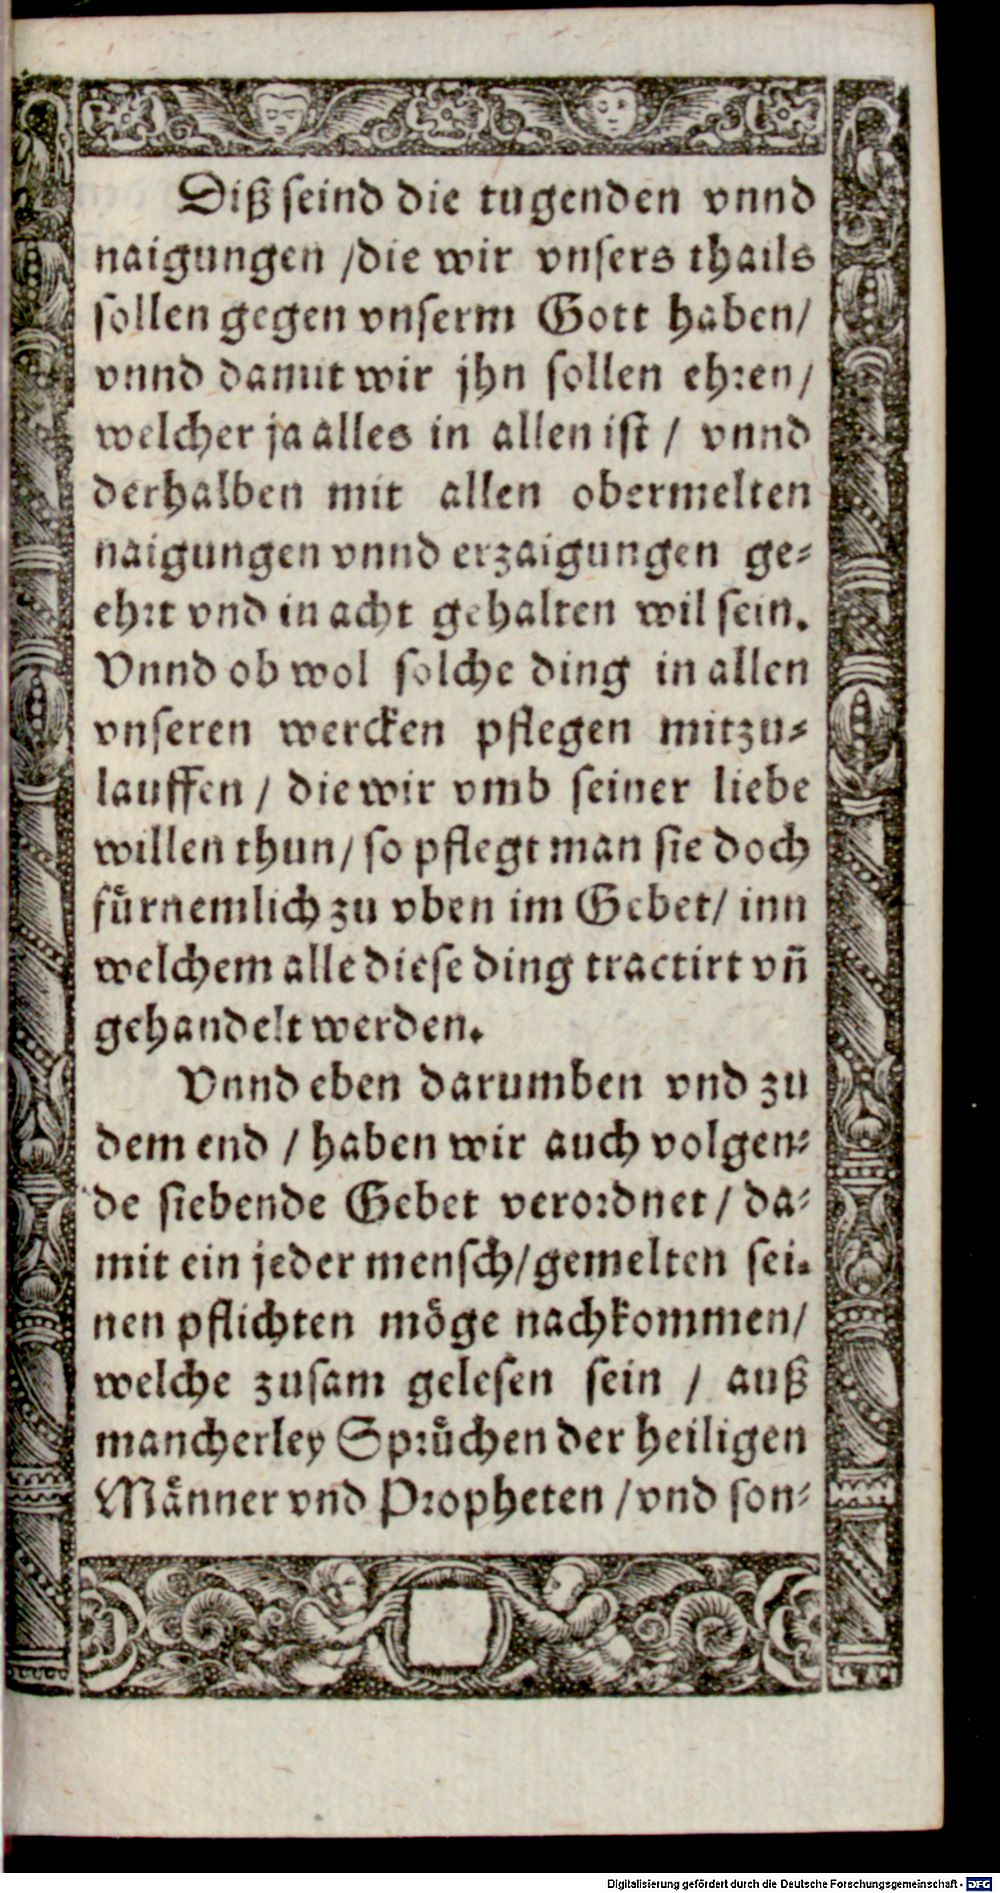 Diß seind die tugenden vnnd
naigungen / die wir vnsers thails
sollen gegen vnserm Gott haben /
vnnd damit wir jhn sollen ehren /
welcher ja alles in allen ist / vnnd
derhalben mit allen obermelten
naigungen vnnd erzaigungen ge⸗
ehrt vnd in acht gehalten wil sein.
Vnnd ob wol solche ding in allen
vnseren wercken pflegen mitzu⸗
lauffen / die wir vmb seiner liebe
willen thun / so pflegt man sie doch
fuͤrnemlich zu vben im Gebet / inn
welchem alle diese ding tractirt vñ
gehandelt werden.
Vnnd eben darumben vnd zu
dem end / haben wir auch volgen⸗
de siebende Gebet verordnet / da⸗
mit ein jeder mensch / gemelten sei⸗
nen pflichten moͤge nachkommen /
welche zusam gelesen sein / auß
mancherley Spruͤchen der heiligen
Maͤnner vnd Propheten / vnd son⸗
Digitalisierung gefördert durch die Deutsche Forschungsgemeinschaft - DFG